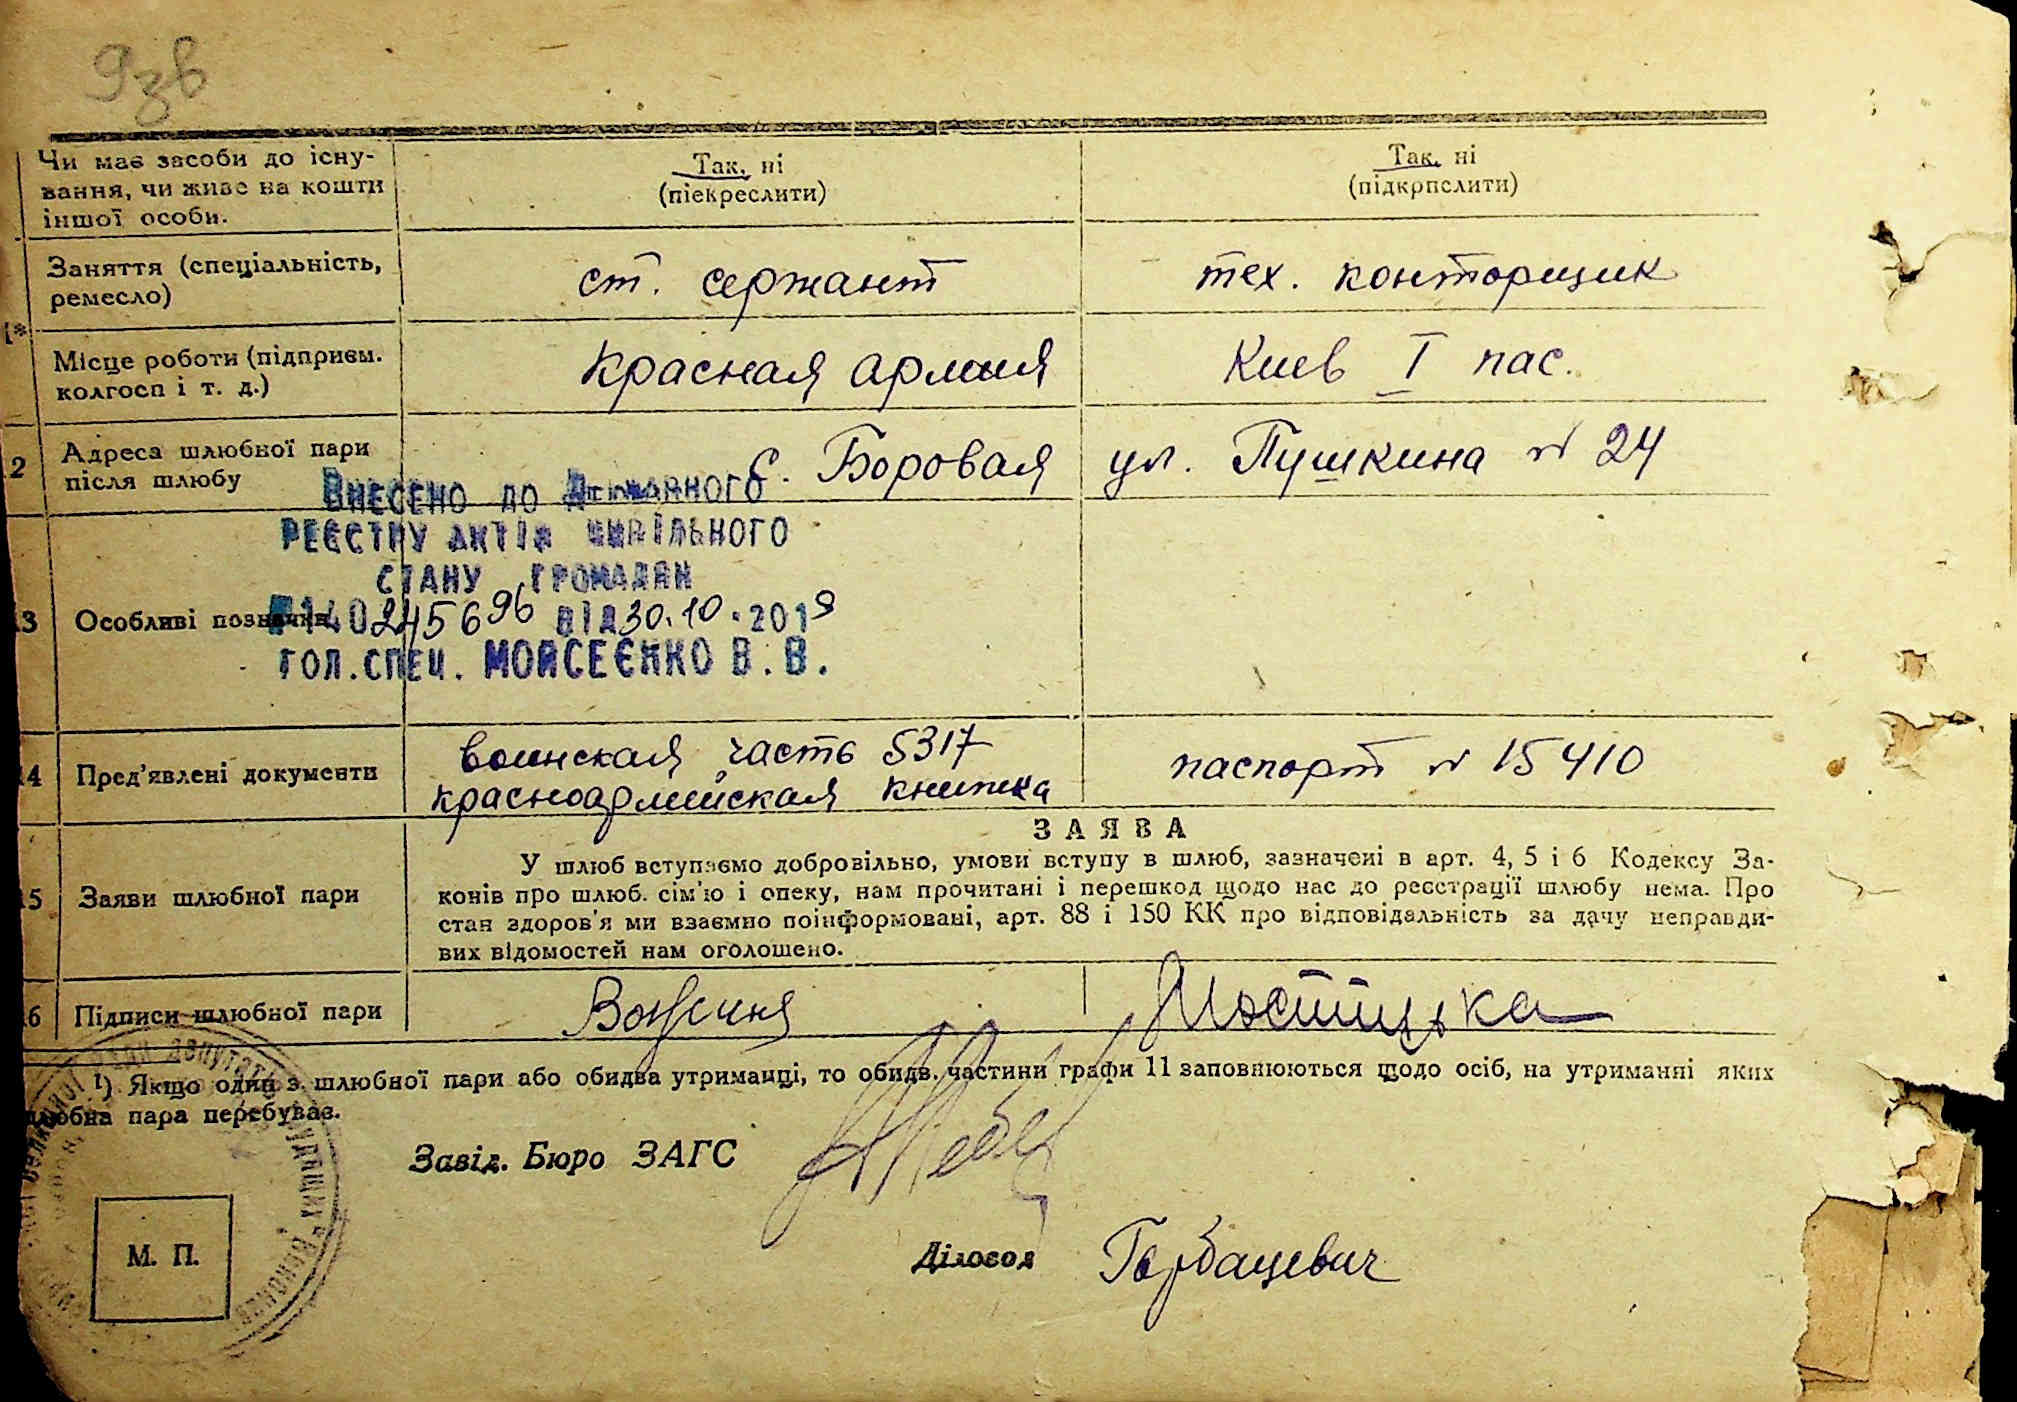 9зв
Чи має засоби до існу-
вання, чи живе на кошти
іншої особи.
Так, ні
(піекреслити)
Так, ні
(підкрпслити)
Заняття (спеціальність,
ремесло)
ст. сержант
тех. конторщик
Місце роботи (підприєм.
колгосп і т. д.)
Красная армия
Киев I пас.
2
Адреса шлюбної пари
після шлюбу
с. Боровая
ул. Пушкина № 24
Внесено до Державного
реєстру актів цивільного
стану громадян
140245696 від 30.10.2019
гол.спец. Мойсеєнко В.В.
3
Особливі позначки
14
Пред'явлені документи
воинская часть 5317
красноармейская книжка
паспорт № 15410
ЗАЯВА
15
Заяви шлюбної пари
У шлюб вступаємо добровільно, умови вступу в шлюб, зазначені в арт. 4, 5 і 6 Кодексу За-
конів про шлюб. сім'ю і опеку, нам прочитані і перешкод щодо нас до реєстрації шлюбу нема. Про
стан здоров'я ми взаємно поінформовані, арт. 88 і 150 КК про відповідальність за дачу неправди-
вих відомостей нам оголошено.
6
Підписи шлюбної пари
¹) Якщо один з шлюбної пари або обидва утриманці, то обидв. частини графи 11 заповнюються щодо осіб, на утриманні яких
шлюбна пара перебуває.
Завід. Бюро ЗАГС
М. П.
Діловод
Горбацевич